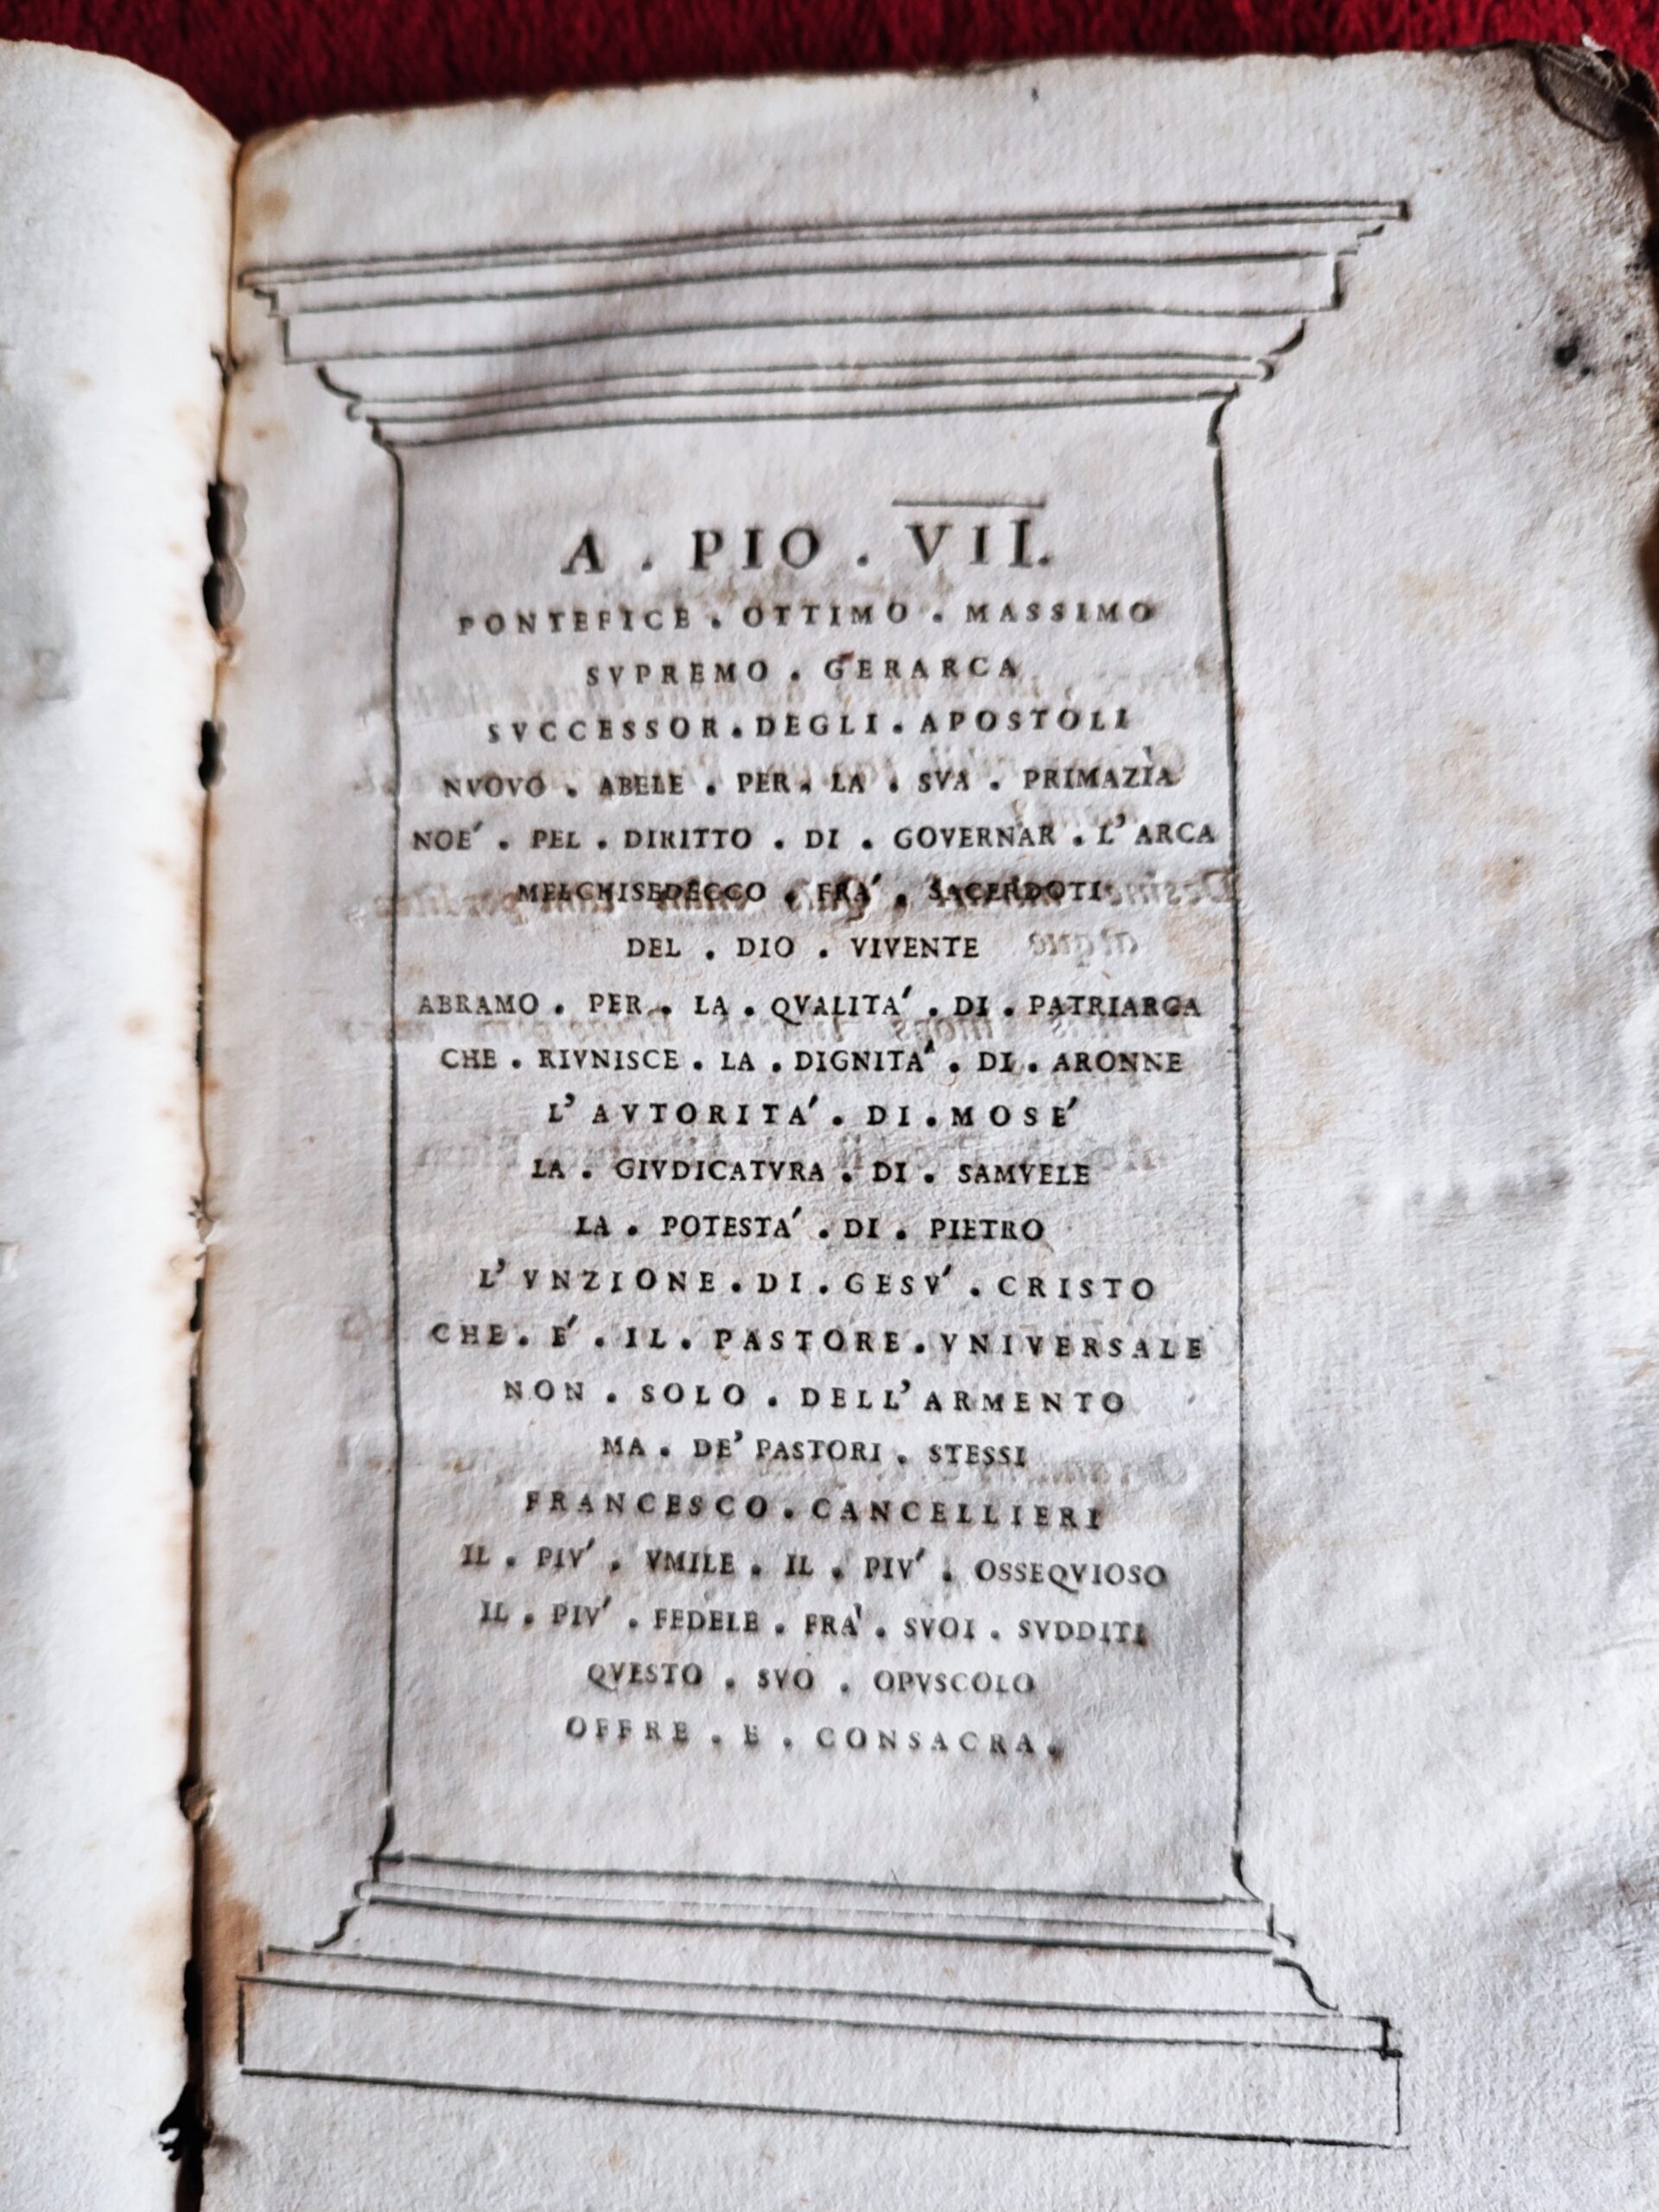 A . PIO . VII.
PONTEFICE . OTTIMO . MASSIMO
SVPREMO . GERARCA
SVCCESSOR . DEGLI . APOSTOLI
NVOVO . ABELE . PER . LA . SVA . PRIMAZÌA
NOE' . PEL . DIRITTO . DI . GOVERNAR . L'ARCA
MELCHISEDECCO . FRA' . SACERDOTI
DEL . DIO . VIVENTE
ABRAMO . PER . LA . QVALITA' . DI . PATRIARCA
CHE . RIVNISCE . LA . DIGNITA' . DI . ARONNE
L'AVTORITA' . DI . MOSE'
LA . GIVDICATVRA . DI . SAMVELE
LA . POTESTA' . DI . PIETRO
L'VNZIONE . DI . GESV' . CRISTO
CHE . E' . IL . PASTORE . VNIVERSALE
NON . SOLO . DELL'ARMENTO
MA . DE' PASTORI . STESSI
FRANCESCO . CANCELLIERI
IL . PIV' . VMILE . IL . PIV' . OSSEQVIOSO
IL . PIV' . FEDELE . FRA' . SVOI . SVDDITI
QVESTO . SVO . OPVSCOLO
OFFRE . E . CONSACRA .